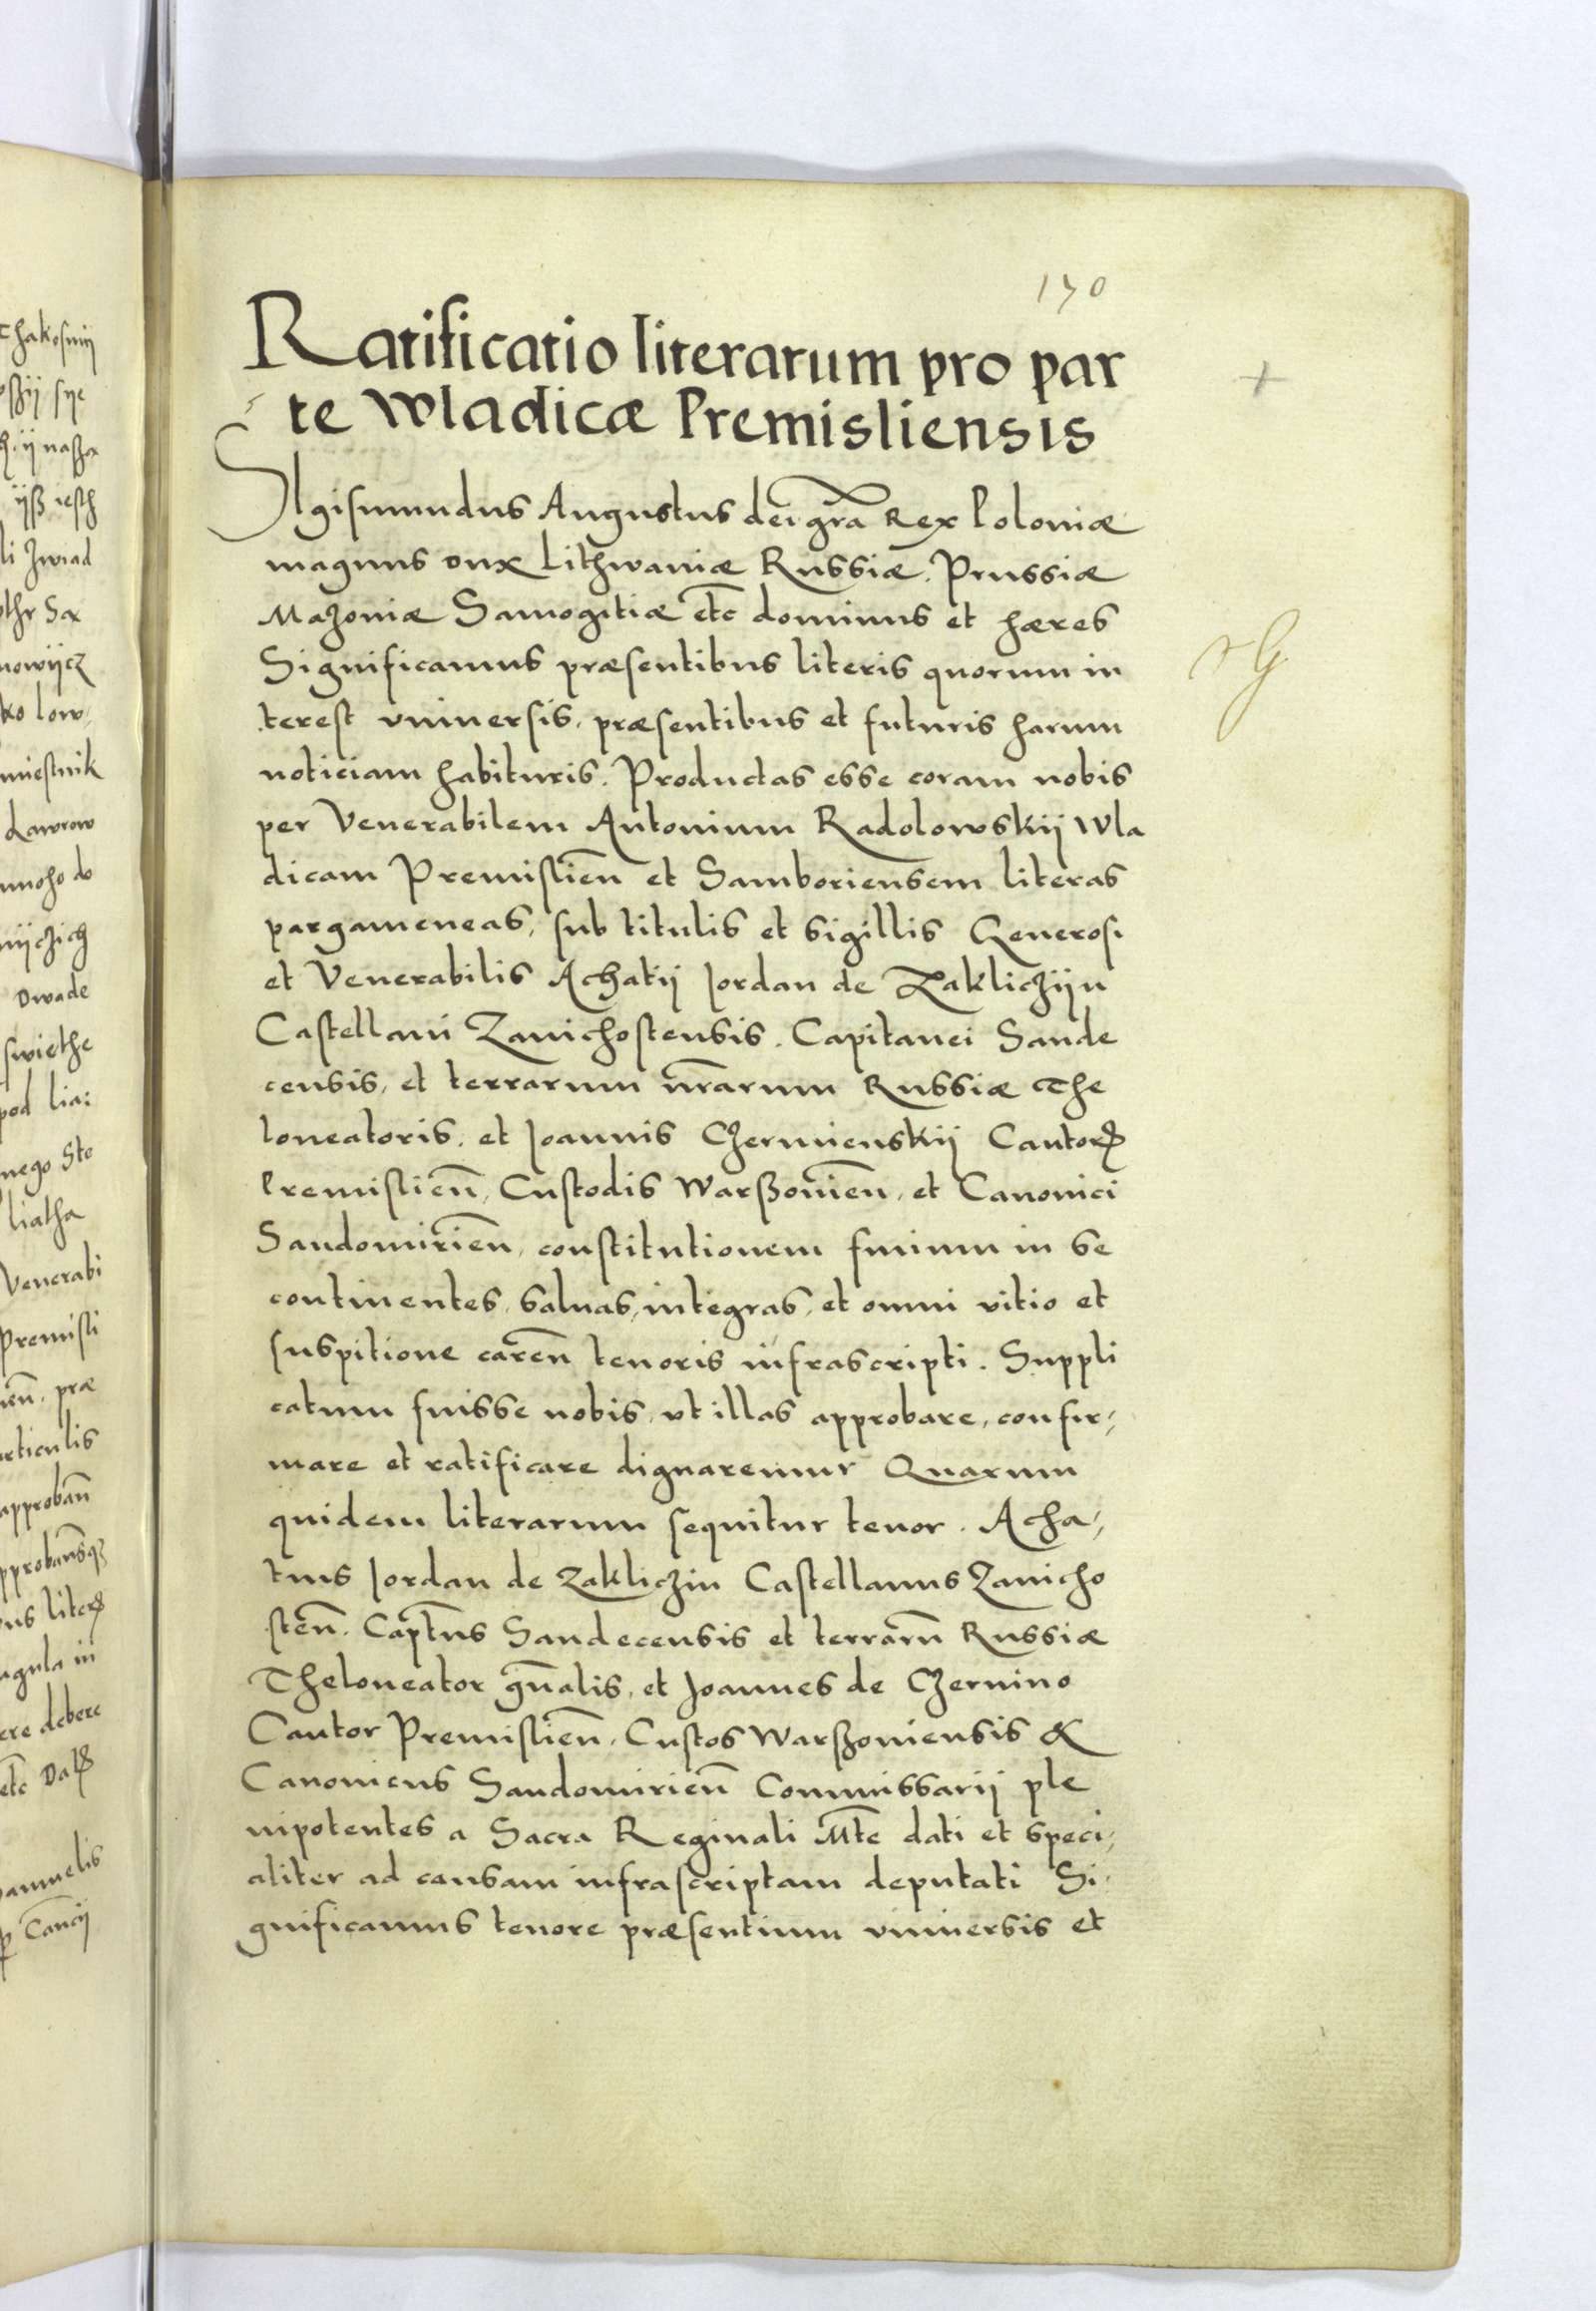 170
Ratificatio literarum pro par
te Wladicæ Premisliensis
SIgismundus Augustus dei gr̃a Rex Poloniæ
magnus dux Lithwaniæ Russiæ. Prussiæ
Mazoniæ Samogitiæ etc̃ dominus et hæres
Significamus præsentibus literis quorum in
terest vniuersis, præsentibus et futuris harum
noticiam habituris. Productas esse coram nobis
per Venerabilem Antonium Radolowskij Wla
dicam Premislień et Samboriensem literas
pargameneas, sub titulis et sigillis Generosi
et Venerabilis Achatij Jordan de Zakliczijn
Castellani Zauichostensis. Capitanei Sande
censis, et terrarum nr̃arum Russiæ The
loneatoris, et Joannis Czermienskij Cantorꝭ
Premislień, Custodis Warßouień, et Canonici
Sandomirień, constitutionem finium in se
continentes, saluas, integras, et omni vitio et
suspitione careñ tenoris infrascripti. Suppli
catum fuisse nobis, vt illas approbare, confir,
mare et ratificare dignaremur Quarum
quidem literarum sequitur tenor. Acha,
tius Jordan de Zakliczin Castellanus Zauicho
steñ. Capt̃ns Sandecensis et terrarũ Russiæ
Theloneator gñalis, et Joannes de Czernino
Cantor Premislień, Custos Warßouiensis &
Canonicus Sandomirień Commissarij ple
nipotentes a Sacra Reginali Mt̃e dati et speci,
aliter ad causam infrascriptam deputati Si,
gnificamus tenore præsentium vniuersis et
thakosmij
sije
ij nasha
ijß iesth
li Zwiad
Sax
nowijcz
ko low,
miestnik
Lawrow
mnoho do
Dwade
swiethe
pod lia:
nego Ste
liatha
Venerabi
Premisli
ień. præ
rticulis
approbañ
pprobansqꝫ
ns literꝭ
agula in
ere debere
etc̃ Datꝭ
amuelis
Cancij